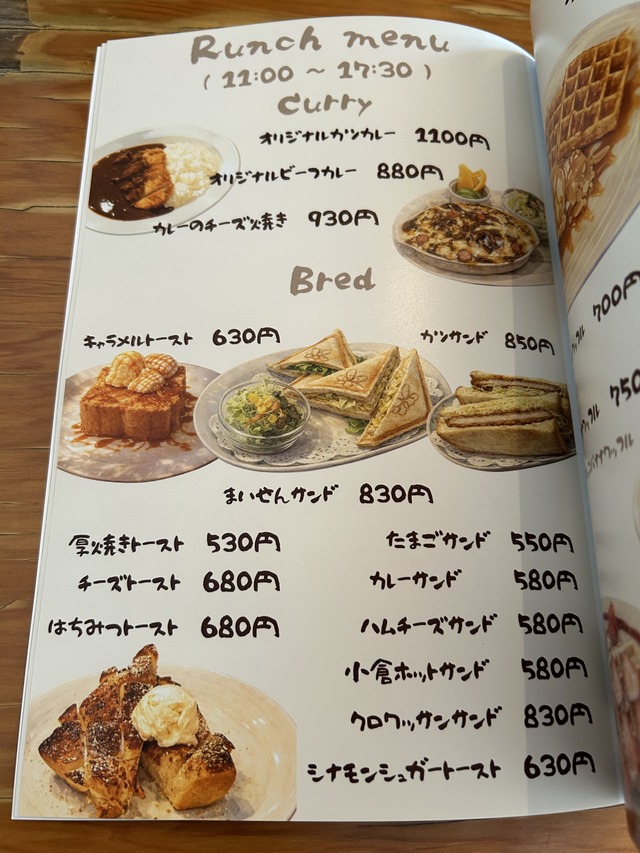 Runch menu
( 11:00 ～ 17:30 )
Curry
オリジナルカツカレー 1100円
オリジナルビーフカレー 880円
カレーのチーズ焼き 930円
Bred
キャラメルトースト 630円
カツサンド 850円
まいせんサンド 830円
厚焼きトースト 530円
チーズトースト 680円
はちみつトースト 680円
たまごサンド 550円
カレーサンド 580円
ハムチーズサンド 580円
小倉ホットサンド 580円
クロワッサンサンド 830円
シナモンシュガートースト 630円
700円
750